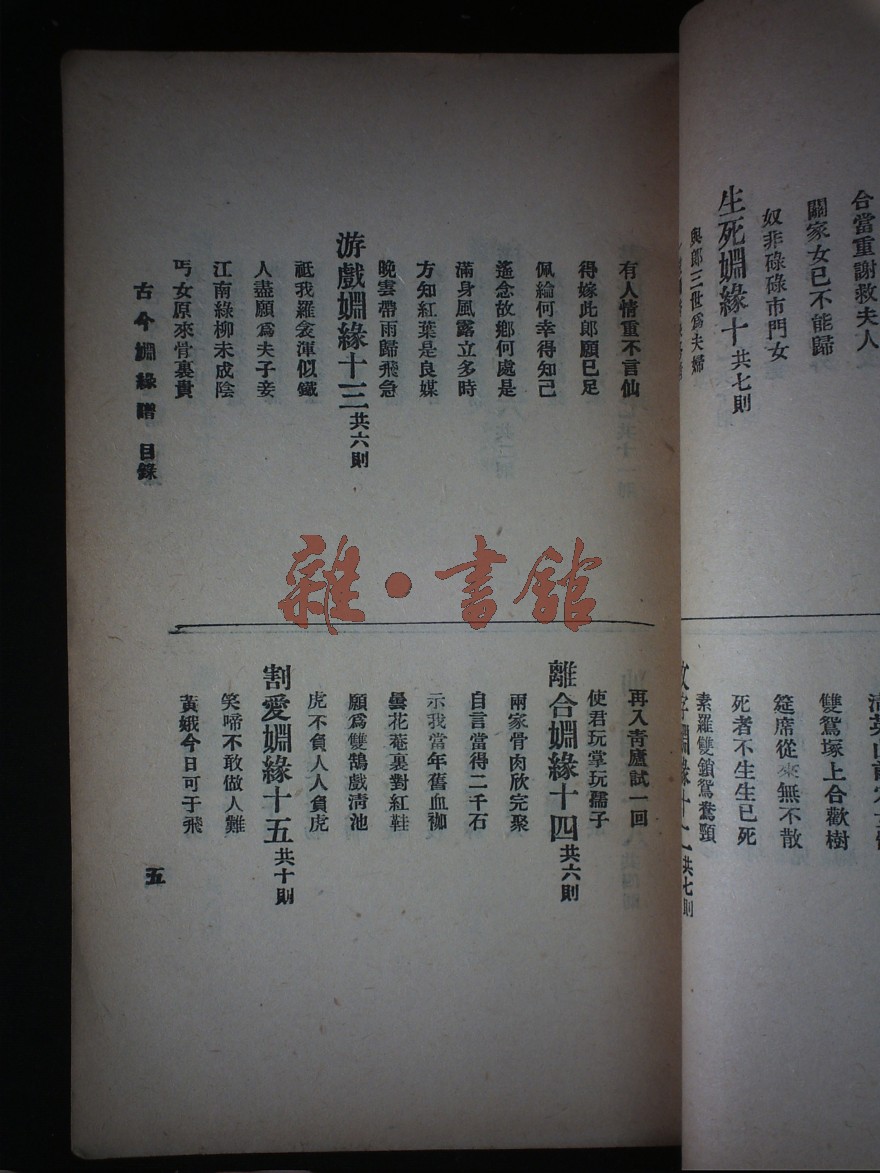 合當重謝救夫人
關家女已不能歸
奴非碌碌市門女
生死婣緣十 共七則
與郎三世爲夫婦
雙鴛塚上合歡樹
筵席從來無不散
死者不生生已死
素羅雙鎖鴛鴦頸
有人情重不言仙
得嫁此郎願已足
佩綸何幸得知己
遙念故鄉何處是
滿身風露立多時
方知紅葉是良媒
晚雲帶雨歸飛急
游戲婣緣十三 共六則
祗我羅衾渾似鐵
人盡願爲夫子妾
江南綠柳未成陰
丐女原來骨裏貴
再入青廬試一回
使君玩掌玩孺子
離合婣緣十四 共六則
兩家骨肉欣完聚
自言當得二千石
示我當年舊血袽
曇花菴裏對紅鞋
願爲雙鵠戲淸池
虎不負人人負虎
割愛婣緣十五 共十則
笑啼不敢做人難
黃娥今日可于飛
古今婣緣譜 目錄
五
雜·書館